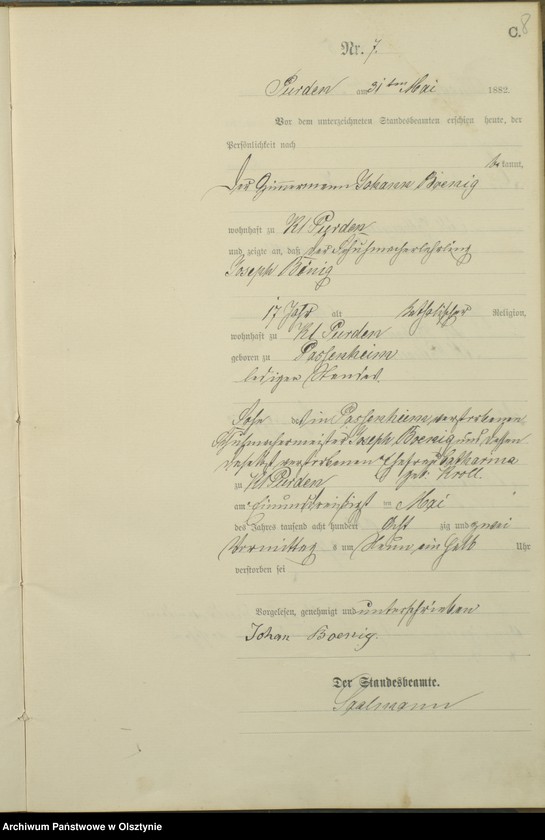 C. 8
Nr. 7.
Purden am 31ten Mai 1882.
Vor dem unterzeichneten Standesbeamten erschien heute, der
Persönlichkeit nach
bekannt,
der Zimmermann Johann Boenig
wohnhaft zu Kl Purden
und zeigte an, daß der Schuhmacherlehrling
Joseph Bönig
17 Jahr alt katholischer Religion,
wohnhaft zu Kl Purden
geboren zu Passenheim
ledigen Standes.
Sohn des in Passenheim verstorbenen
Schuhmachermeister Joseph Boenig und dessen
daselbst verstorbenen Ehefrau Catharina
geb. Kroll.
zu Kl Purden
am Einunddreißigst en Mai
des Jahres tausend acht hundert Acht zig und zwei
Vormittag s um Neun ein halb Uhr
verstorben sei
Vorgelesen, genehmigt und unterschrieben
Johan Boenig.
Der Standesbeamte.
Saalmann
Archiwum Państwowe w Olsztynie